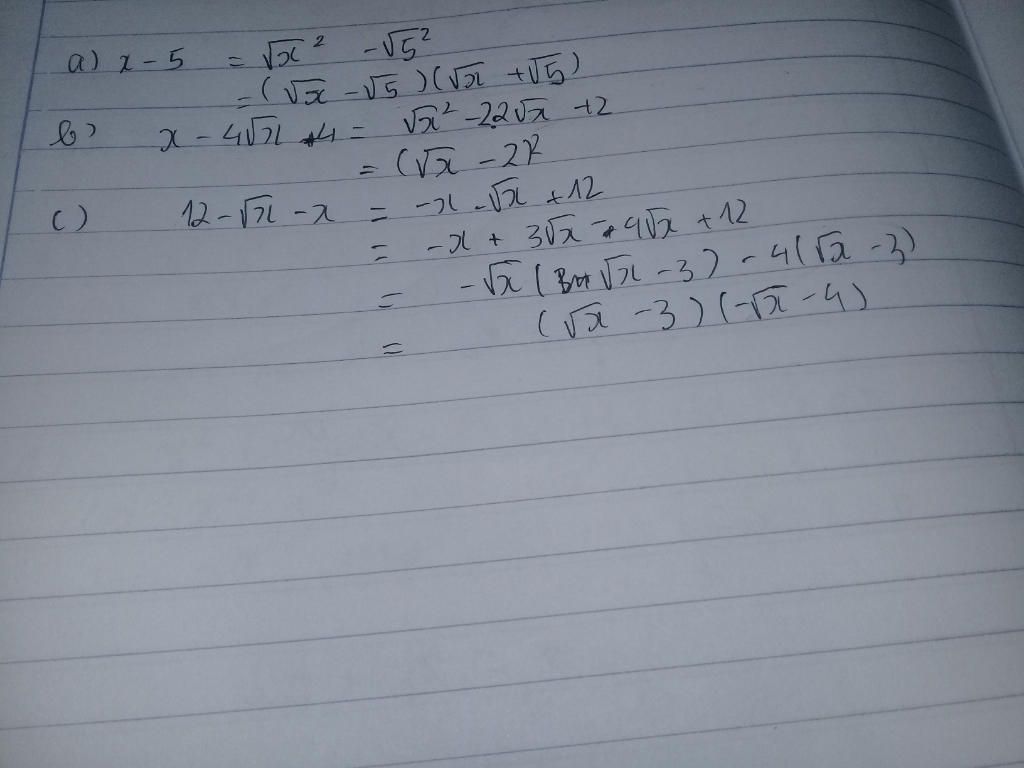 a) x - 5 = √x² - √5²
= (√x - √5)(√x + √5)
b) x - 4√x + 4 = √x² - 2.2√x + 2
= (√x - 2)²
c) 12 - √x - x = -x - √x + 12
= -x + 3√x - 4√x + 12
= -√x ( √x - 3) - 4(√x - 3)
= (√x - 3)(-√x - 4)